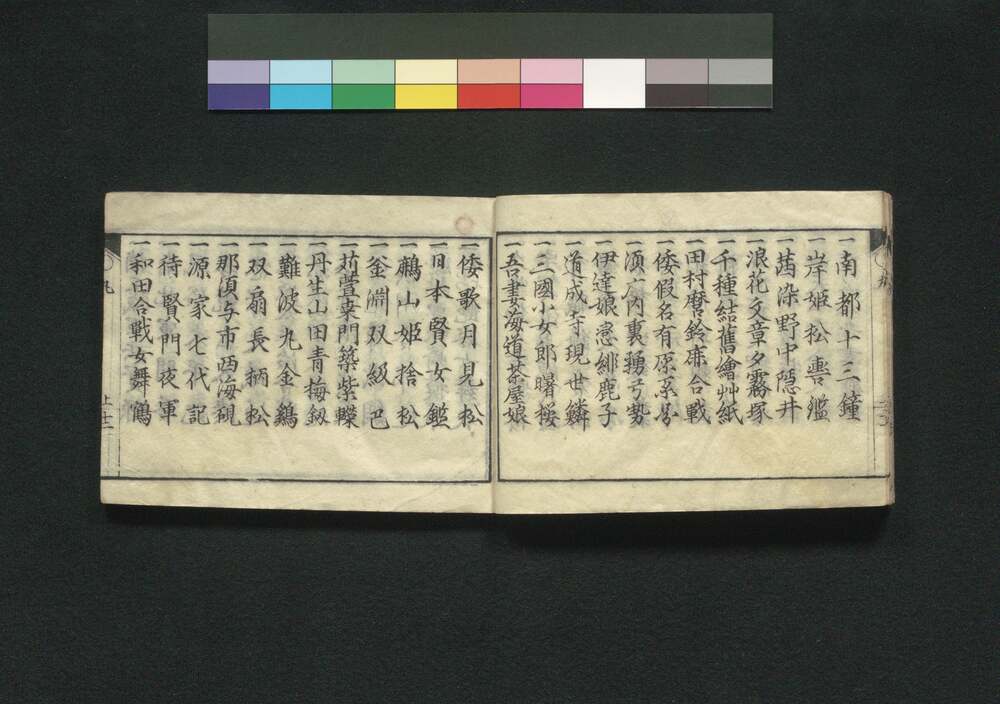 一南都十三鐘
一岸姫松轡鑑
一茜染野中隠井
一浪花文章夕霧塚
一千種結舊繪艸紙
一田村麿鈴鹿合戰
一倭假名有原系
一須广内裏弓勢
一伊達娘恋緋鹿子
一道成寺現世鱗
一三國小女郎曙桜
一吾妻海道茶屋娘
一倭歌月見松
一日本賢女鑑
一鵜山姫捨松
一釜淵双級巴
一苅萱桒門築紫𨏍
一丹生山田青海釼
一難波丸金鷄
一双扇長柄松
一那須与市西海硯
一源家七代記
一待賢門夜軍
一和田合戰女舞鶴
上十二